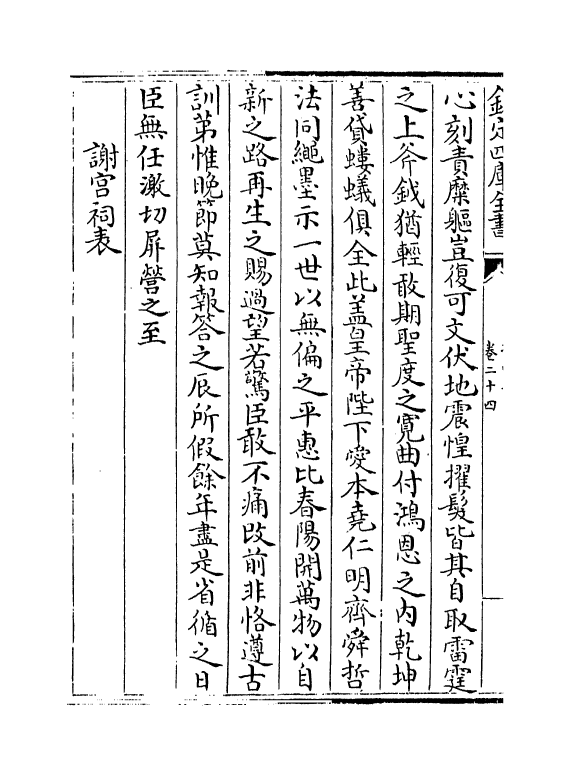 欽定四庫全書
卷二十四
心刻責糜軀豈復可文伏地震惶擢髮皆其自取雷霆
之上斧鉞猶輕敢期聖度之寛曲付鴻恩之内乾坤
善貸螻蟻俱全此盖皇帝陛下愛本堯仁明齊舜哲
法同繩墨示一世以無偏之平惠比春陽開萬物以自
新之路再生之賜過望若驚臣敢不痛改前非恪遵古
訓第惟晩節莫知報答之辰所假餘年盡是省循之日
臣無任激切屏營之至
謝宫祠表